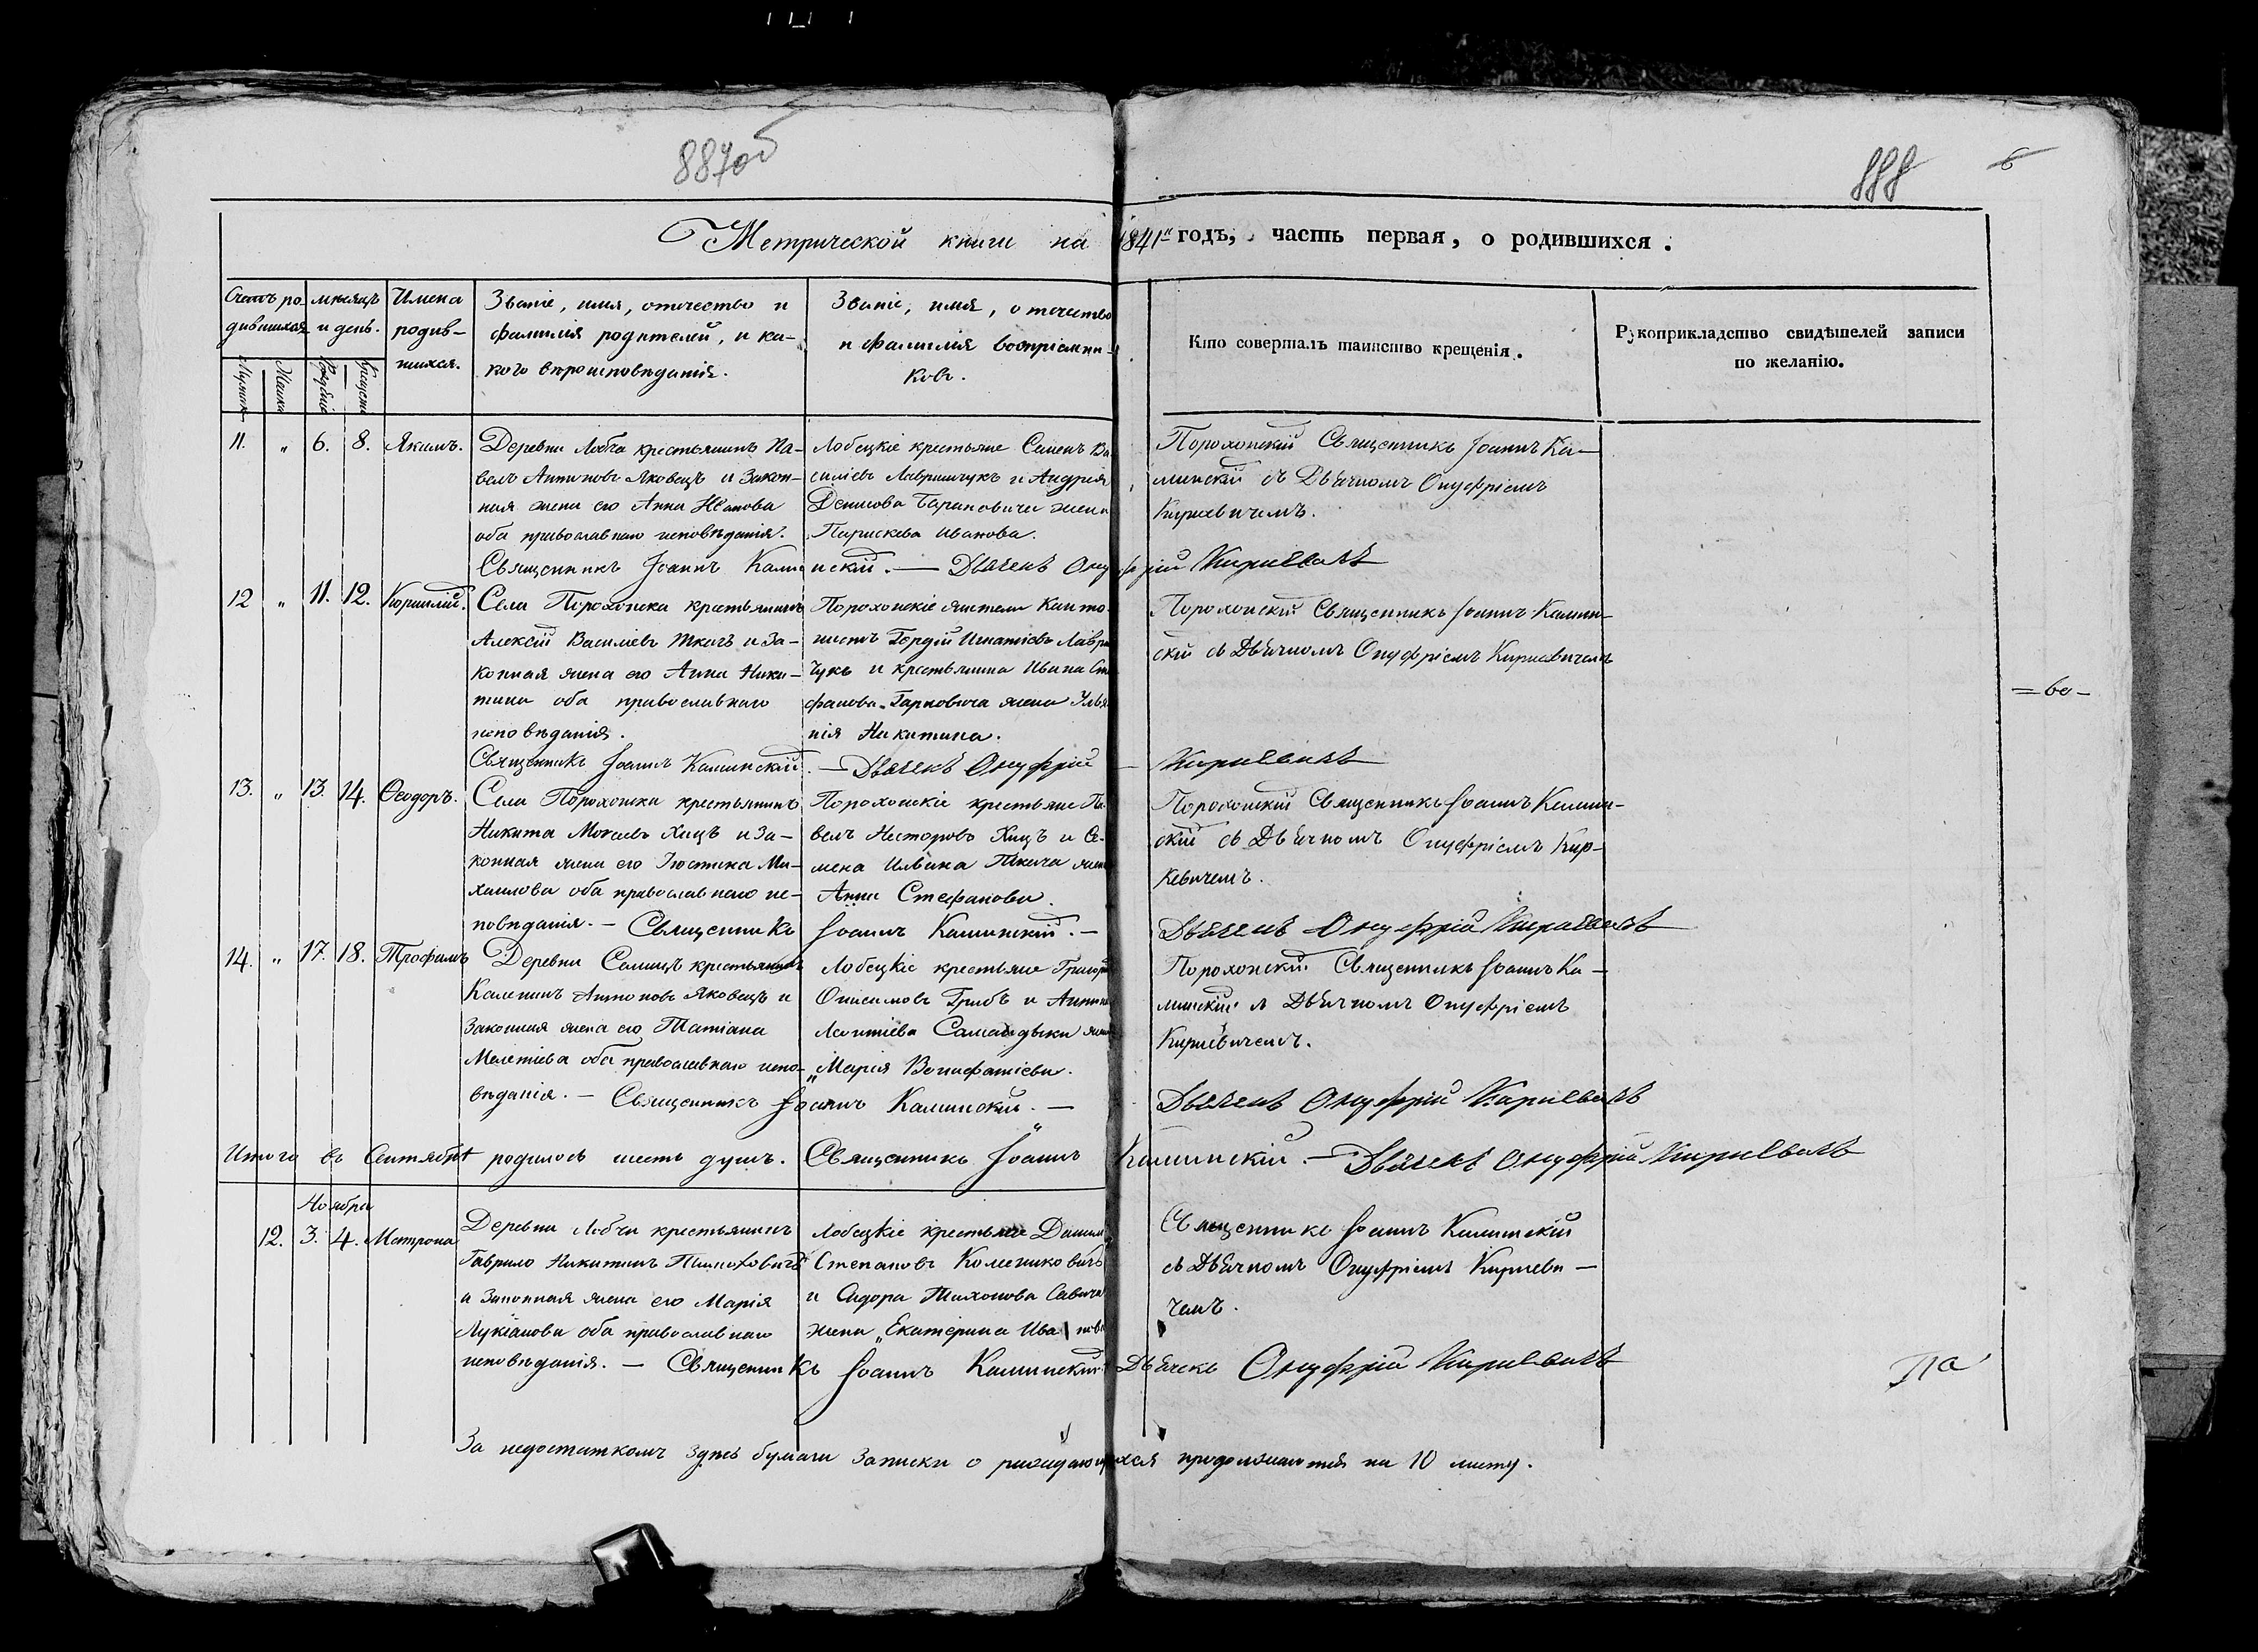 887об
888
6
Метрической книги на 1841й годъ, часть первая, о родившихся.
Счетъ ро-
дившихся
мѣсяцъ
и день.
Имена
родив-
шихся.
Званіе, имя, отечество и
фамилія родителей, и ка-
кого вѣроисповѣданія.
Званіе, имя, отечество
и фамилія воспріемни-
ковъ.
Кто совершалъ таинство крещенія.
Рукоприкладство свидѣтелей записи
по желанію.
11. „ 6. 8. Якимъ.
Деревни Лобча крестьянинъ Па-
велъ Антоновъ Яковецъ и закон-
ная жена его Анна Иванова
оба православнаго исповѣданія.
Лобецкіе крестьяне Семенъ Ва
силіевъ Лавришчукъ и Андрея
Денисова Барановича жена
Парискева Иванова.
Порохонскій Священникъ Іоаннъ Ка-
минскій съ Дьячкомъ Онуфріемъ
Киркевичемъ.
Священникъ Іоаннъ Каминскій. — Дьячекъ Онуфрій Киркевичъ
12 „ 11. 12. Корнилій.
Села Порохонска крестьянинъ
Алексій Василіевъ Ткачъ и за-
конная жена его Анна Ники-
тина оба православнаго
исповѣданія.
Порохонскіе жители Канто-
нистъ Гордій Игнатіевъ Лаври
чукъ и крестьянина Ивана Сте
фанова Гарковича жена Улья
нія Никитина.
Порохонскій Священникъ Іоаннъ Камин-
скій съ Дьячкомъ Онуфріемъ Киркевичемъ
=во-
Священникъ Іоаннъ Каминскій. — Дьячекъ Онуфрій — Киркевичъ
13. „ 13. 14. Ѳеодоръ.
Села Порохонска крестьянинъ
Никита Мокеевъ Хицъ и за-
конная жена его Іюстина Ми-
хаилова оба православнаго ис-
повѣданія. — Священникъ Іоаннъ Каминскій. —
Порохонскіе крестьяне Па
велъ Несторовъ Хицъ и Се-
мена Ильина Ткача жена
Анна Стефанова.
Порохонскій Священникъ Іоаннъ Камин-
скій съ Дьячкомъ Онуфріемъ Кир-
кевичемъ.
Дьячекъ Онуфрій Киркевичъ
14. „ 17. 18. Трофимъ
Деревни крестьянинъ
Калининъ Антоновъ Яковецъ и
законная жена его Татіана
Мелетіева оба православнаго испо-
вѣданія. — Священникъ Іоаннъ Каминскій. —
Лобецкіе крестьяне Григорій
Онисимовъ Грибъ и
Леонтіева жена
„Марія Вонифатіева.
Порохонскій Священникъ Іоаннъ Ка-
минскій съ Дьячкомъ Онуфріемъ
Киркевичемъ.
Дьячекъ Онуфрій Киркевичъ
Итого въ Сентябрѣ родилось шесть душъ. Священникъ Іоаннъ Каминскій. — Дьячекъ Онуфрій Киркевичъ
Ноября
12. 3. 4. Матрона
Деревни Лобчи крестьянинъ
Гаврило Никитинъ
и законная жена его Марія
Лукіанова оба православнаго
исповѣданія. — Священникъ Іоаннъ Каминскій Дьячекъ Онуфрій Киркевичъ
Лобецкіе крестьяне Данило
Степановъ Колениковичъ
и Сидора Тихонова Савича
жена „Екатерина Иванова
Священникъ Іоаннъ Каминскій
съ Дьячкомъ Онуфріемъ Киркеви-
чемъ.
па
За недостаткомъ здѣсь бумаги записки о раждающихся продолжаются на 10 листу.